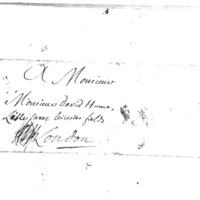 A Monsieur
Monsieur David Hume,
Lisle street Leicester fields
London